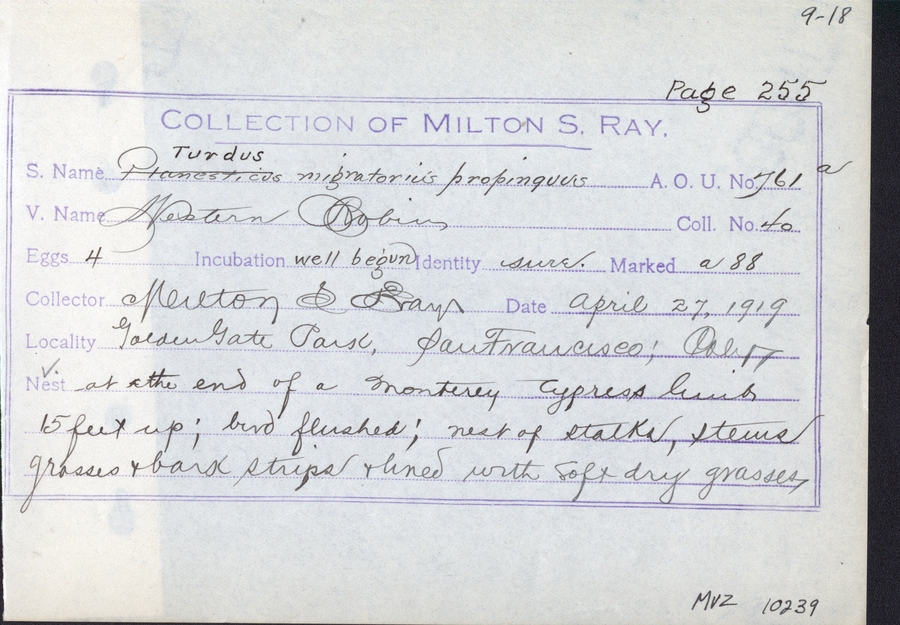 9-18
Page 255
COLLECTION OF MILTON S. RAY.
Turdus
S. Name Planesticus migratorius propinquus A. O. U. No. 761 a
V. Name Western Robin Coll. No. 40
Eggs 4 Incubation well begun Identity sure. Marked a 88
Collector Milton S Ray Date April 27, 1919
Locality Golden Gate Park, San Francisco; Calif
Nest at the end of a Monterey Cypress limb
15 feet up; bird flushed; nest of stalks, stems
grasses & bark strips & lined with soft dry grasses,
MVZ 10239